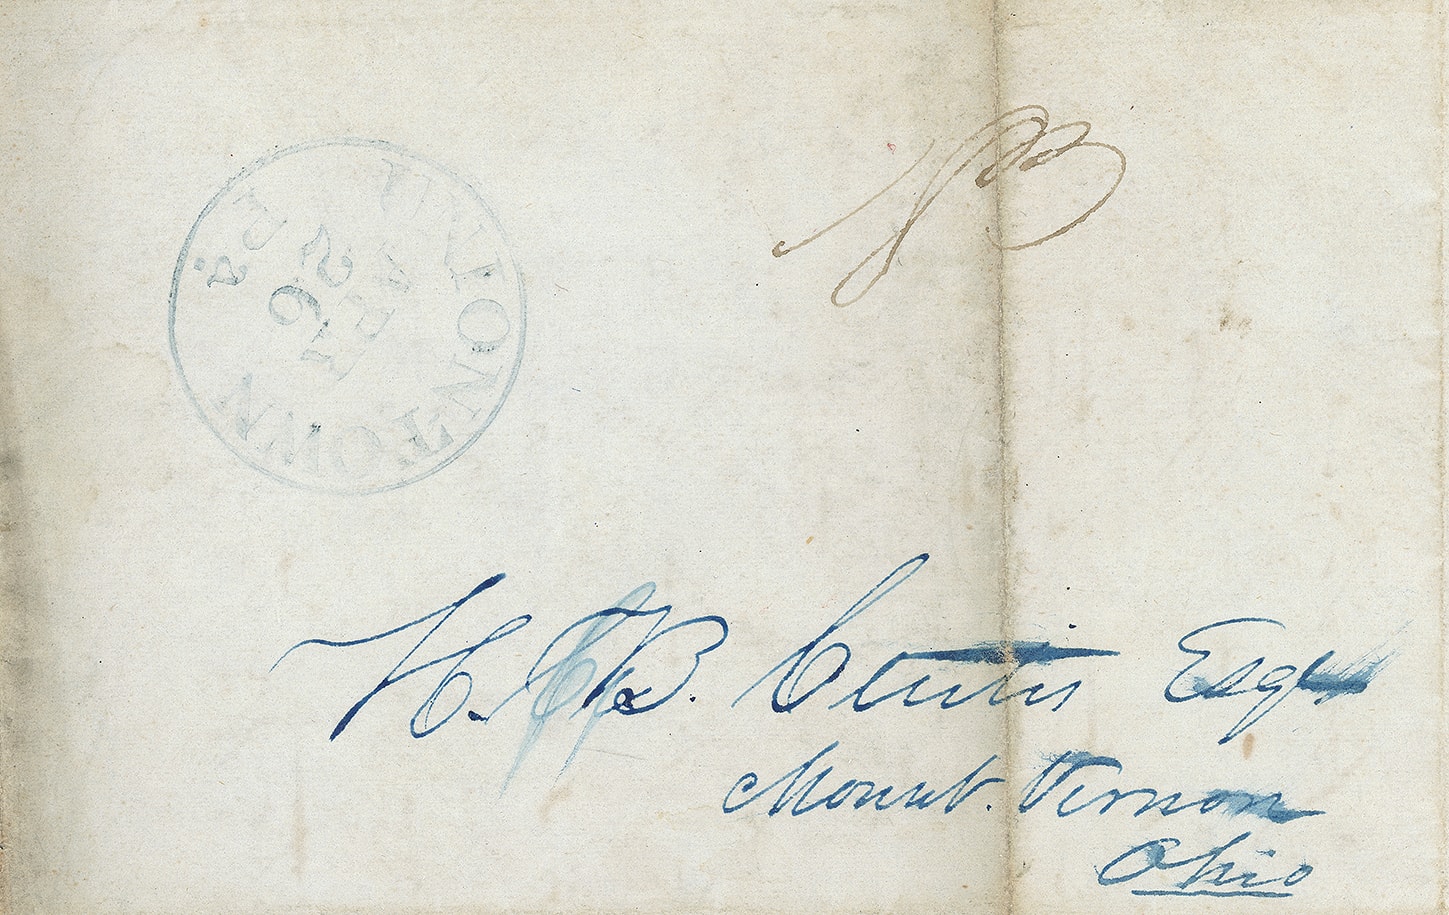 UNIONTOWN
H. B. Curtis Esqr
Mount Vernon
Ohio